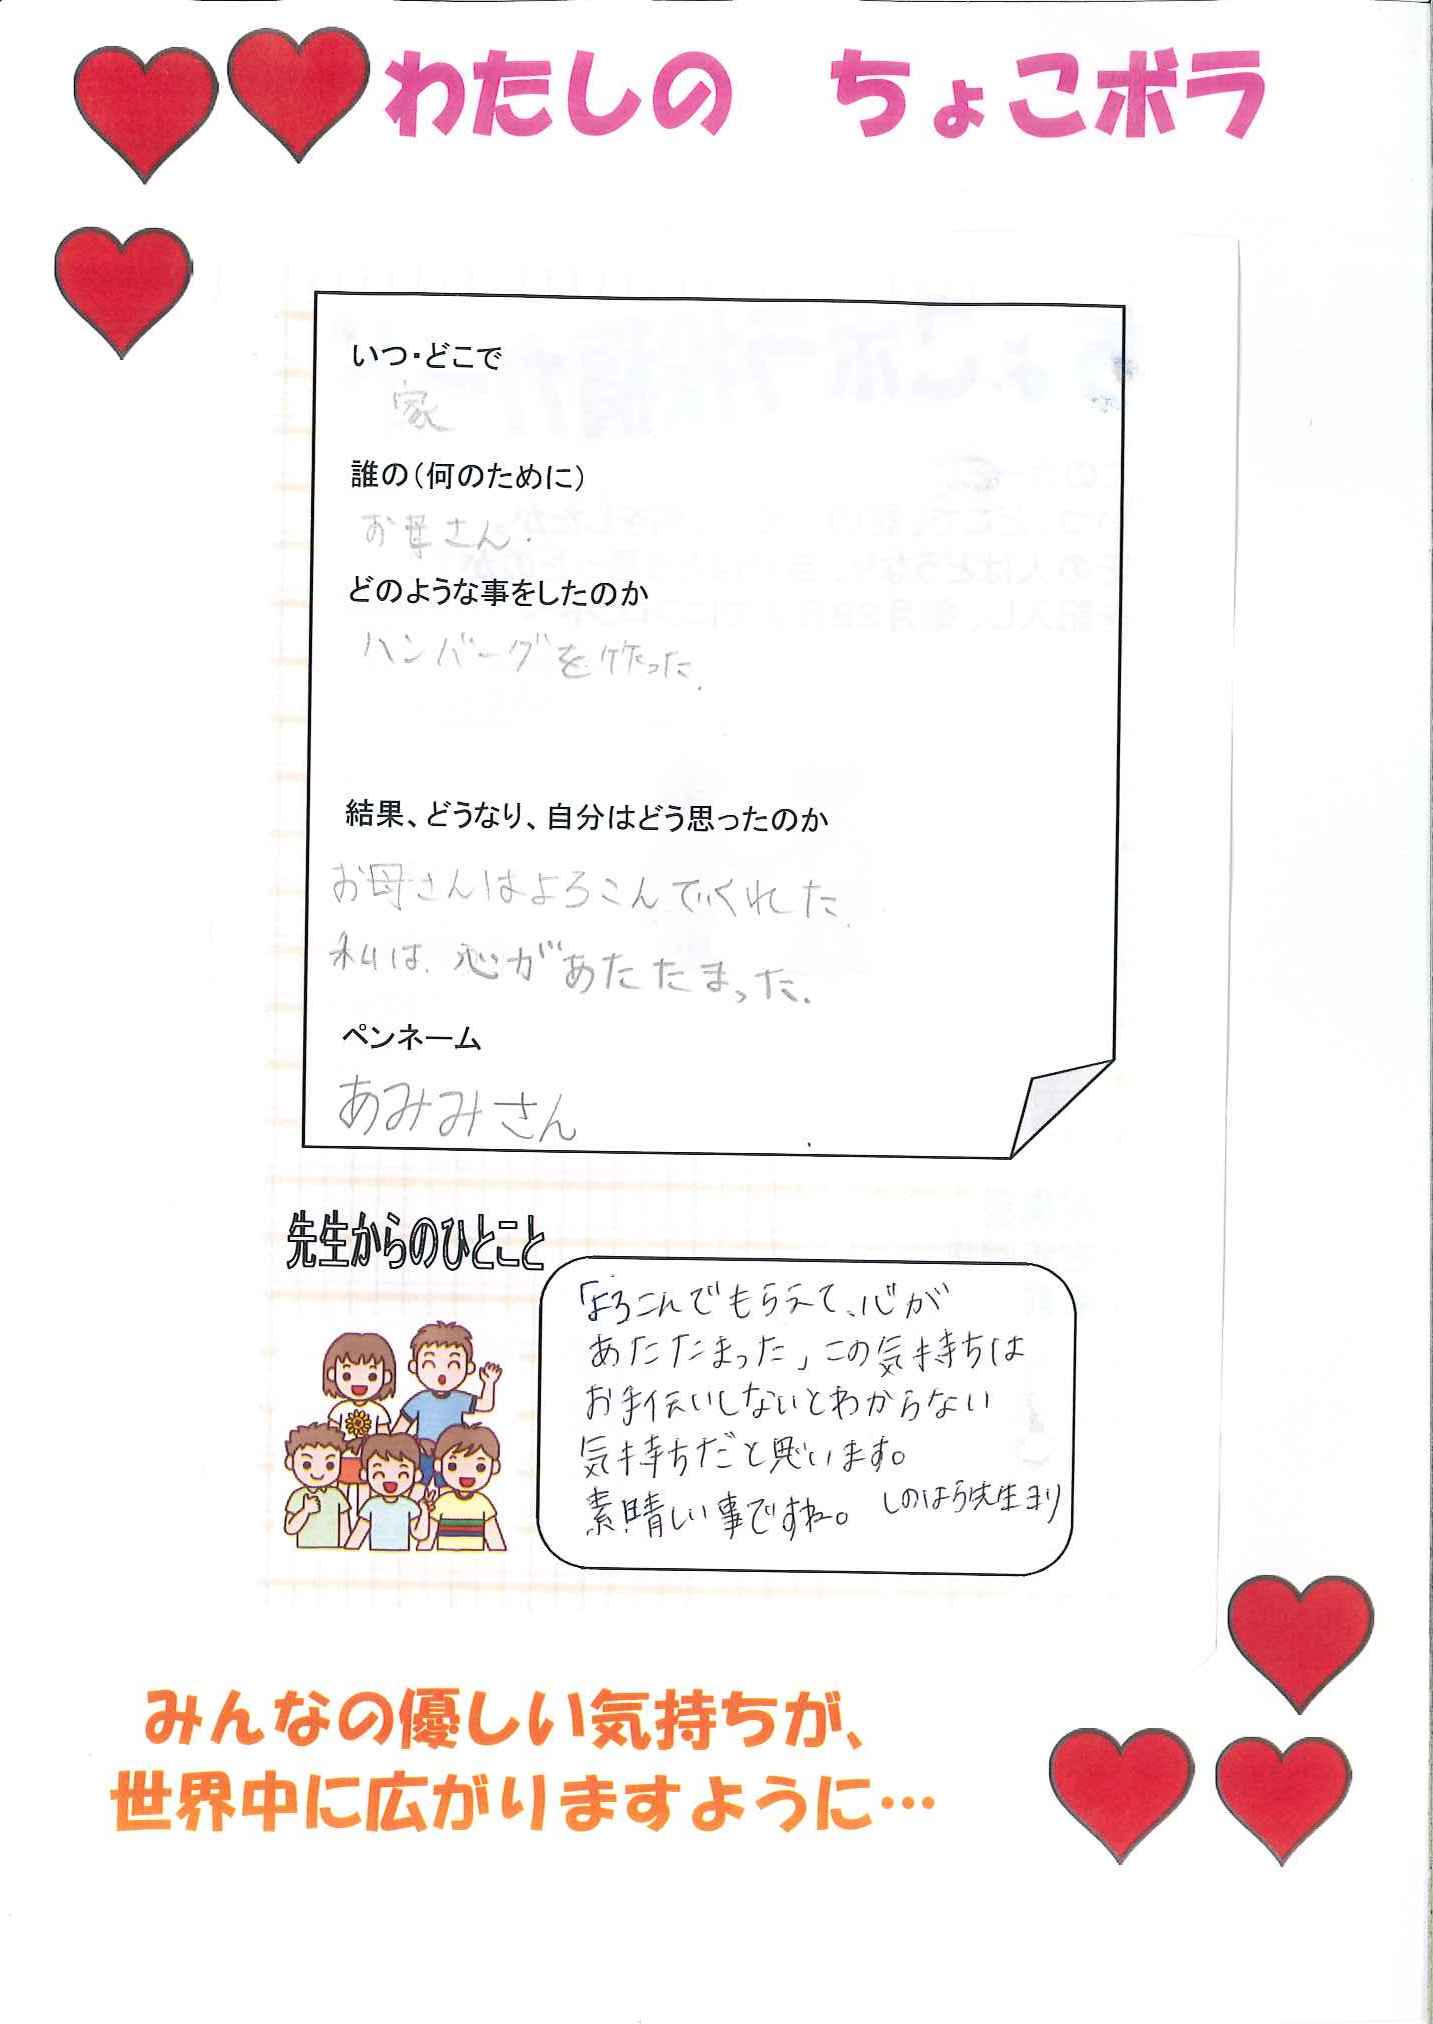 わたしの　ちょこボラ
いつ・どこで
家
誰の（何のために）
お母さん.
どのような事をしたのか
ハンバーグを作った.
結果、どうなり、自分はどう思ったのか
お母さんはよろこんでくれた.
私は、心があたたまった.
ペンネーム
あみみさん
先生からのひとこと
「よろこんでもらえて、心が
あたたまった」この気持ちは
お手伝いしないとわからない
気持ちだと思います。
素晴しい事ですね。 しのはら先生ヨリ
みんなの優しい気持ちが、
世界中に広がりますように…